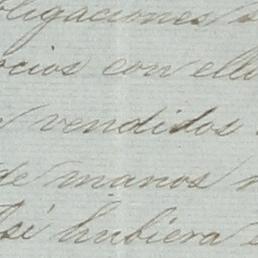 bligaciones s
ocios con ello
vendidos
de manos
Así hubiera e